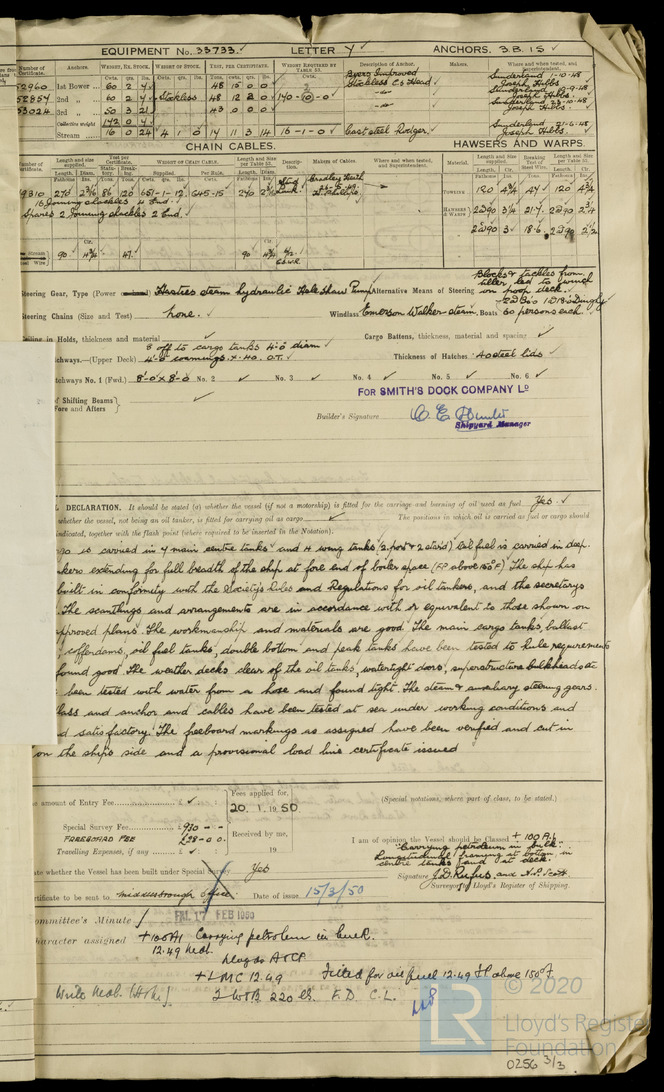 EQUIPMENT No. 33733. LETTER Y ANCHORS. 3.B. 1S
Number of Certificate. Anchors. WEIGHT, EX. STOCK. WEIGHT OF STOCK. TEST, PER CERTIFICATE. WEIGHT REQUIRED BY TABLE 53. Description of Anchor. Makers. Where and when tested, and Superintendent.
Cwts. qrs. lbs.
52960 1st Bower 60 2 4 48 15 0 0 Byers Improved Stockless C.S. Head Sunderland 1-10-48 Joseph Hibbs
52854 2nd " 60 2 4 Stockless 48 12 2 0 140-10-0 Joseph Hibbs
53024 3rd " 50 3 21 43 0 0 0 Sunderland 23-10-48 Joseph Hibbs.
Collective weight 172 0 4
Stream 16 0 24 4 1 0 14 11 3 14 16-1-0 Cast steel Rodger Sunderland 21-6-48 Joseph Hibbs.
CHAIN CABLES. HAWSERS AND WARPS.
Number of Certificate. Length and size supplied. Test per Certificate. WEIGHT OF CHAIN CABLE. Length and size per Table 53. Description. Makers of Cables. Where and when tested, and Superintendent. Material. Length and size supplied. Breaking Test of Steel Wire. Length and Size per Table 53.
Fathoms Diam. Supplied. Per Rule. Length. Diam.
270 2 3/16 86 120 651-1-12 645-15 270 Stud Link TOWLINE 120 4 3/4 47 120 4 3/4
16 Joining shackles 4 End. HAWSERS & WARPS 2@90 3 1/4 21.7 2@90 2 3/4
Spares 2 Joining shackles 2 End. 2@90 3 18.6 2@90 2 1/2
90 4 3/4 47. 90 4 3/4
Steering Gear, Type (Power Hasties steam hydraulic Hele Shaw Pump Alternative Means of Steering Blocks & tackles from tiller led to winch on poop deck.
Steering Chains (Size and Test) none. Windlass Emerson Walker steam. Boats 60 persons each.
Ceiling in Holds, thickness and material Cargo Battens, thickness, material and spacing
8 off to cargo tanks 4'-0 diam
Hatchways.—(Upper Deck) 4'-0 coamings x .40. O.T. Thickness of Hatches .40 steel lids
Hatchways No. 1 (Fwd.) 8'-0 x 8'-0 No. 2 No. 3 No. 4 No. 5 No. 6
of Shifting Beams Fore and Afters
FOR SMITH'S DOCK COMPANY LD
Builder's Signature
Shipyard Manager
DECLARATION. It should be stated (a) whether the vessel (if not a motorship) is fitted for the carriage and burning of oil used as fuel Yes.
whether the vessel, not being an oil tanker, is fitted for carrying oil as cargo The positions in which oil is carried as fuel or cargo should
indicated, together with the flash point (where required to be inserted in the Notation).
is carried in 7 main centre tanks and 4 wing tanks (2 port & 2 starb'd) Oil fuel is carried in deep
bunkers extending for full breadth of the ship at fore end of boiler space (F.P. above 150°F) The ship has
built in conformity with the Society's Rules and Regulations for oil tankers, and the secretarys
The scantlings and arrangements are in accordance with or equivalent to those shown on
approved plans. The workmanship and materials are good. The main cargo tanks, ballast
cofferdams, oil fuel tanks, double bottom and peak tanks have been tested to Rule requirements
found good. The weather decks clear of the oil tanks, watertight doors, superstructure bulkheads etc
been tested with water from a hose and found tight. The steam & auxiliary steering gears.
windlass and anchor and cables have been tested at sea under working conditions and
found satisfactory. The freeboard markings as assigned have been verified and cut in
on the ships side and a provisional load line certificate issued
amount of Entry Fee £ : :
Special Survey Fee £930 - -
FREEBOARD FEE £28-0-0
Travelling Expenses, if any £ : :
Fees applied for,
20. 1. 1950
Received by me,
19
(Special notations, where part of class, to be stated.)
I am of opinion the Vessel should be Classed + 100 A1
"Carrying petroleum in bulk"
Longitudinal framing at bottom in
centre tanks and at deck.
state whether the Vessel has been built under Special Survey Yes
Signature J.D. Rufus and
Surveyor to Lloyd's Register of Shipping.
Certificate to be sent to Middlesbrough office Date of issue 15/3/50
Committee's Minute FRI. 17 FEB 1950
Character assigned +100A1 Carrying petroleum in bulk.
12.49
Lloyds A & CP
+LMC 12.49 Fitted for oil fuel 12.49 F.P. above 150°F.
2 WTB 220 lb. F.D. C.L.
LR
© 2020
Lloyd's Register
Foundation
0256 3/3